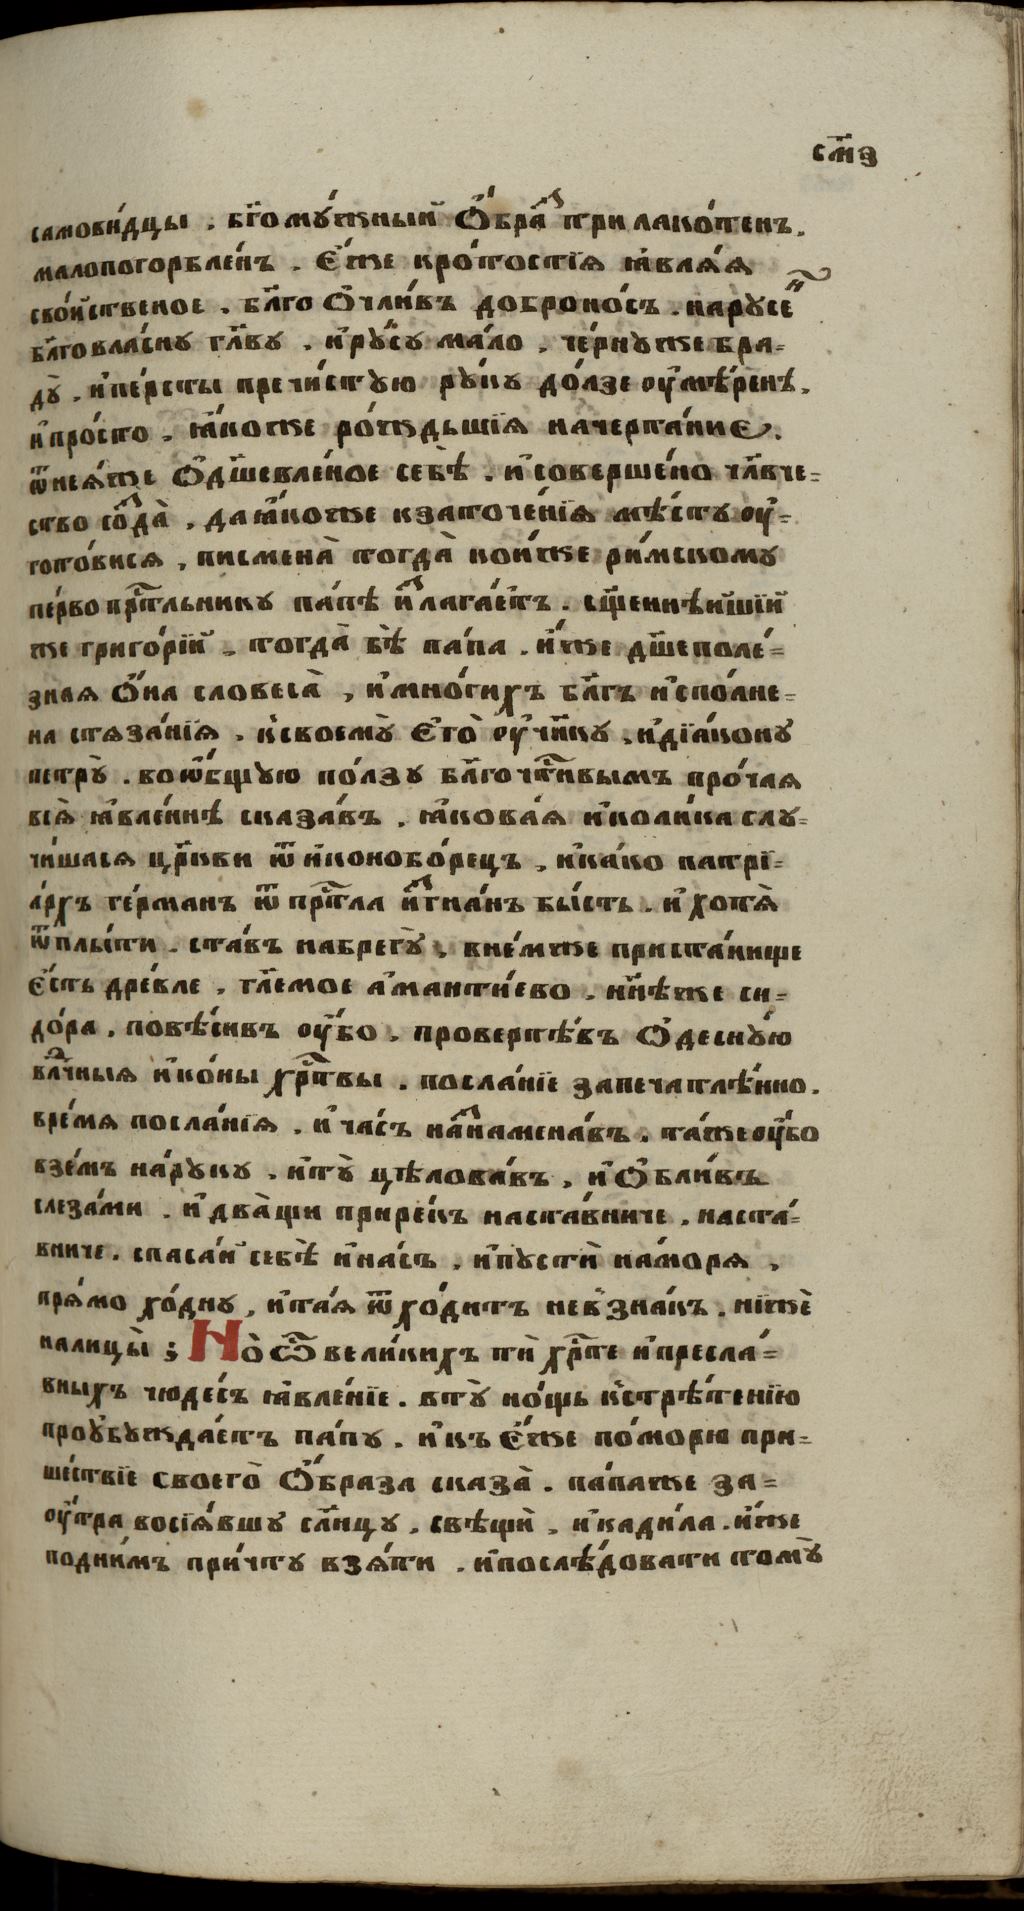 см҃з
самови́дцы . бг҃ому́жный Ѻ҆́бра^з трилако́тенъ .
малопогорбле́нъ . Є҆́же кро́тостїѧ ꙗ҆влѧ́ѧ
сво́йственое . бл҃го Ѻ҆чли́въ доброно́съ . нарусе^н
бл҃говла́сну гл҃ву . и҆ру́су ма́ло , че́рнуже бра=
дꙋ̀ . и҆пе́рсты пречи́стую рꙋ́кꙋ до́лзе ᲂу҆мѣ́ренѣ .
и҆про́сто . ꙗ҆́коже ро́ждьшїѧ начерта́ниє .
ѿнеѧ́же Ѻ҆дш҃евле́ное себѣ̀ . и҆соверше́но чл҃вче=
ство со^з҆да̀ . даꙗ҆́коже кзаточе́нїѧ мѣ́сту ᲂу҆=
гото́висѧ , писмена̀ тогда̀ кои́же ри́мскому
пе́рво прⷭ҇тльнику па́пѣ и҆^злага́етъ . сщ҃еннѣ́йшїй
же григо́рїй , тогда̀ бѣ̀ па́па . и҆́же дш҃еполе́=
знаѧ Ѻ҆́на словеса̀ , и҆мно́гихъ бл҃гъ и҆спо́лне=
на стѧза́нїѧ . ксвоемꙋ̀ Є҆го̀ ᲂу҆чн҃кꙋ , и҆дїа́конꙋ
петрꙋ̀ . воѡ҆́бщую по́лзу бл҃гочⷭ҇ти́вымъ про́чаѧ
всѧ̀ ꙗ҆вле́ннѣ сказа́въ . ꙗ҆кова́ѧ и҆коли́ка слу=
чи́шасѧ цр҃кви ѿ и҆коноборе́цъ , и҆ка́ко патрї=
а́рхъ ге́рманъ ѿ прⷭ҇тла и҆^згна́нъ бы́сть . и҆ хотѧ̀
ѿплы́ти . ста́въ набрегꙋ̀ , вне́мже приста́нище
є҆́сть дре́вле , гл҃емое а҆манти́ево . нн҃ѣже си=
до́ра , повѣ́сивъ ᲂу҆́бо . провертѣ́въ Ѻ҆деснꙋ́ю
влⷣчныѧ и҆ко́ны хрⷭ҇твы . посла́нїе запечатлѣ́нно .
вре́мѧ посла́нїѧ . и҆ ча́съ на^з҆намена́въ . та́жеᲂу҆́бо
взе́мъ на́руку . и҆тꙋ̀ цѣлова́въ , и҆Ѻ҆бли́въ
слеза́ми . и҆два́щи прире́къ наста́вниче , наста́=
вниче . спаса́й себѣ̀ и҆на́съ , и҆пустѝ на́морѧ ,
прѧ́мо хо́дну , и҆та́ѧ ѿхо́дитъ нев́знакъ . нїжѐ
налицы̀ ; Но̀ Ѿ вели́кихъ тѝ хрⷭ҇те и҆пресла́=
вныхъ чюде́съ ꙗ҆вле́нїе . втꙋ̀ но́щь ќстрѣ́тенїю
проубужда́етъ па́пу . и҆къ Є҆́же по́морю при=
ше́ствїе своего̀ Ѻ҆́браза сказа̀ . па́паже за=
ᲂу҆́тра восїѧ́вшу сл҃нцу , свѣщѝ , и҆кади́ла . и҆́же
подни́мъ при́чту взѧ́ти . и҆послѣ́довати томꙋ̀